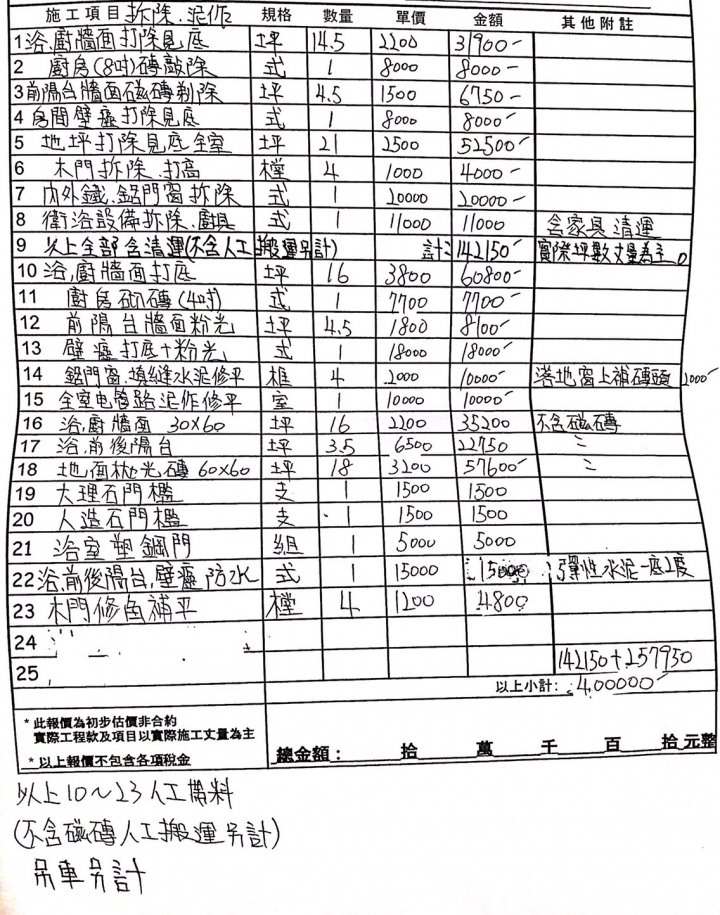 施工項目 拆除.泥作 規格 數量 單價 金額 其他附註
1 浴.廚牆面打除見底 坪 14.5 2200 31900-
2 廚房(8吋)磚敲除 式 1 8000 8000-
3 前陽台牆面磁磚剃除 坪 4.5 1500 6750-
4 房間壁癌打除見底 式 1 8000 8000-
5 地坪打除見底全室 坪 21 2500 52500-
6 木門拆除.打高 樘 4 1000 4000-
7 內外鐵.鋁門窗拆除 式 1 20000 20000-
8 衛浴設備拆除.廚具 式 1 11000 11000 含家具清運
9 以上全部含清運(不含人工搬運另計) 計:142150- 實際坪數丈量為主。
10 浴.廚牆面打底 坪 16 3800 60800-
11 廚房砌磚(4吋) 式 1 7700 7700-
12 前陽台牆面粉光 坪 4.5 1800 8100-
13 壁癌打底+粉光 式 1 18000 18000-
14 鋁門窗.填縫水泥修平 框 4 2000 10000- 落地窗上補磚頭 2000-
15 全室电管路泥作修平 室 1 10000 10000-
16 浴.廚牆面 30x60 坪 16 2200 35200 不含磁磚
17 浴.前後陽台 坪 3.5 6500 22750 〃
18 地面拋光磚 60x60 坪 18 3200 57600- 〃
19 大理石門檻 支 1 1500 1500
20 人造石門檻 支 1 1500 1500
21 浴室塑鋼門 組 1 5000 5000
22 浴.前後陽台.壁癌防水 式 1 15000 15000 彈性水泥一底2度
23 木門修角補平 樘 4 1200 4800
24
25 142150+257950
以上小計: 400000-
* 此報價為初步估價非合約
實際工程款及項目以實際施工丈量為主
* 以上報價不包含各項稅金
總金額: 拾 萬 千 百 拾 元整
以上10~23人工帶料
(不含磁磚人工搬運另計)
吊車另計